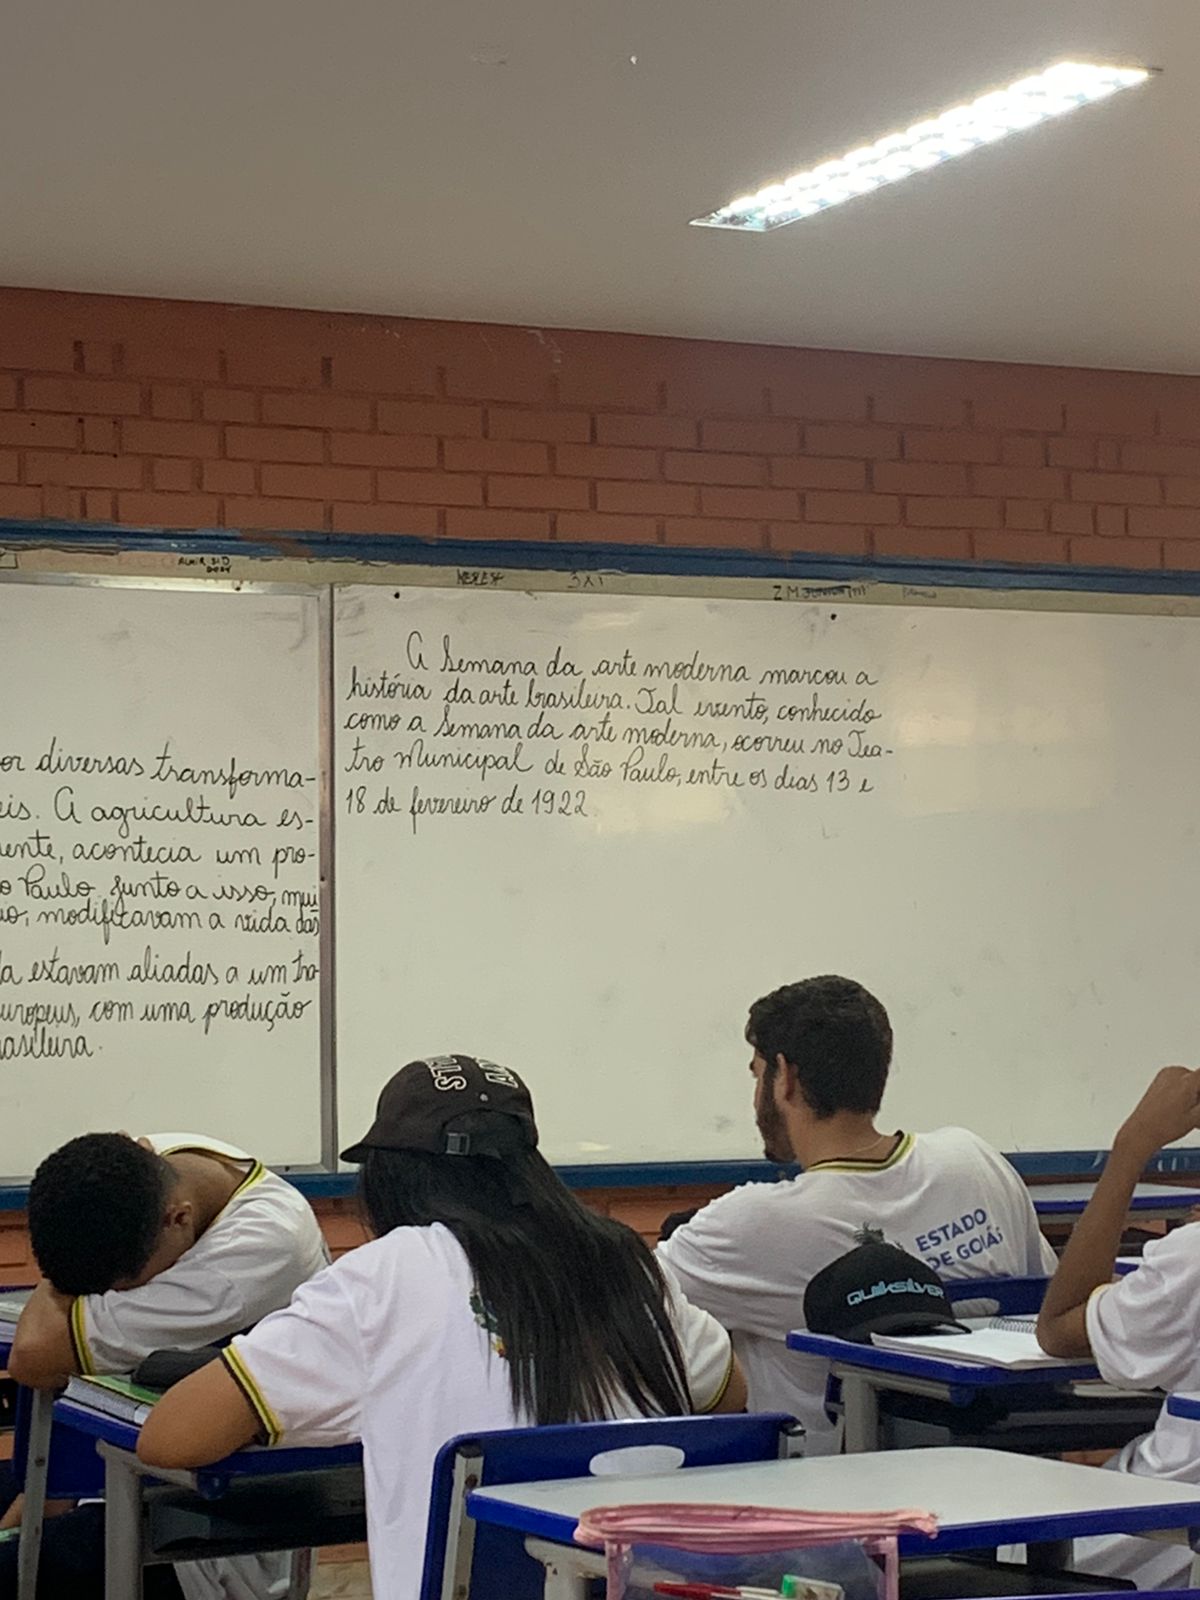 ALMIR SID
3X1
Z M JUNIOR
or diversas transforma-
eis. A agricultura es-
uente, acontecia um pro-
o Paulo. Junto a isso, mui
io, modificavam a vida das
la estavam aliadas a um tra
uropeus, com uma produção
asileira.
A Semana da arte moderna marcou a
história da arte brasileira. Tal evento, conhecido
como a Semana da arte moderna, ocorreu no Tea-
tro Municipal de São Paulo, entre os dias 13 e
18 de fevereiro de 1922
ESTADO
DE GOIÁS
QUIKSILVER